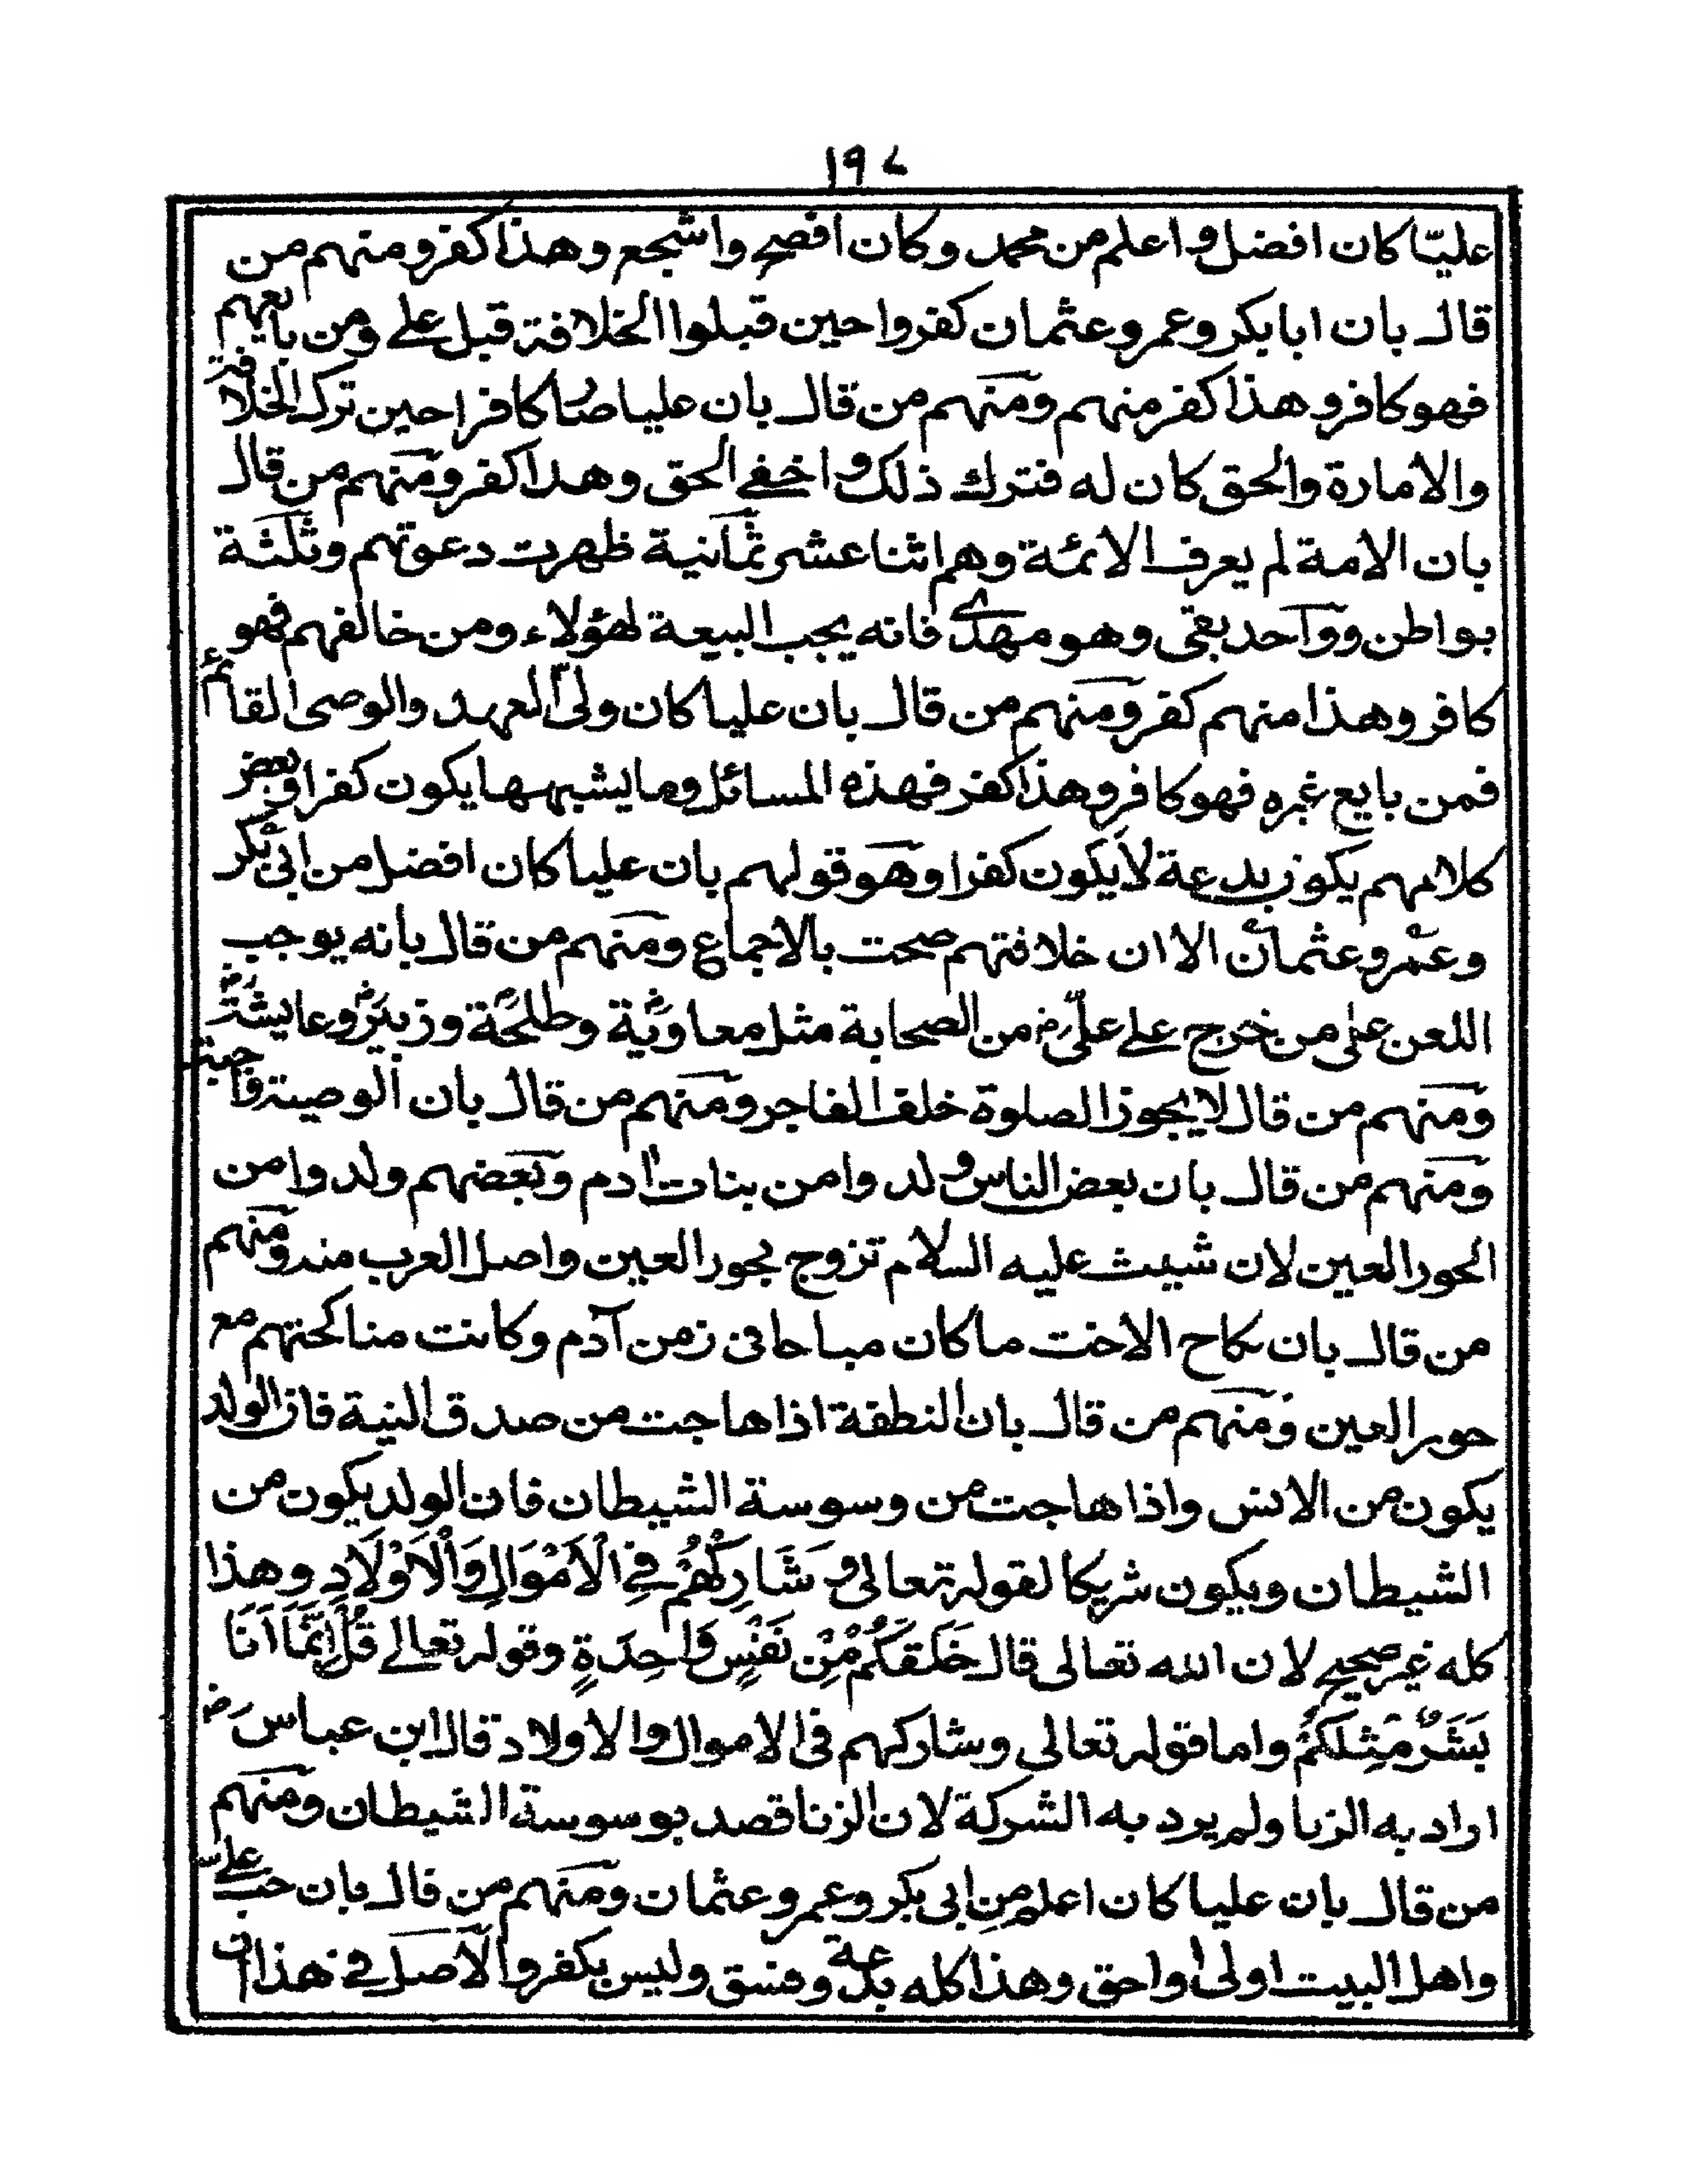 ١٩٧
عليّا كان افضل و اعلم من محمد وكان افصح واشجع وهذا كفر ومنهم من
قال بان ابابكر وعمر وعثمان كفروا حين قبلوا الخلافة قبل على ومن بايعهم
فهو كافر وهذا كفر منهم ومنهم من قال بان عليا صار كافرا حين ترك الخلافة
والامارة والحق كان له فترك ذلك و اخفى الحق وهذا كفر ومنهم من قال
بان الامة لم يعرف الائمة وهم اثنا عشر ثمانية ظهرت دعوتهم وثلثة
بواطن وواحد بقى وهو مهدى فانه يجب البيعة لهؤلاء ومن خالفهم فهو
كافر وهذا منهم كفر ومنهم من قال بان عليا كان ولى العهد والوصى القائم
فمن بايع غيره فهو كافر وهذا كفر فهذه المسائل وما يشبهها يكون كفرا وبعض
كلامهم يكون بدعة لا يكون كفرا وهو قولهم بان عليا كان افضل من ابى بكر
وعمر وعثمان الا ان خلافتهم صحت بالاجماع ومنهم من قال بانه يوجب
اللعن على من خرج على علىّ رض من الصحابة مثل معاوية وطلحة وزبير وعايشة
ومنهم من قال لا يجوز الصلوة خلف الفاجر ومنهم من قال بان الوصية واجبة
ومنهم من قال بان بعض الناس ولدوا من بنات ادم وبعضهم ولدوا من
الحور العين لان شيث عليه السلام تزوج بحور العين واصل العرب منه ومنهم
من قال بان نكاح الاخت ما كان مباحا فى زمن آدم وكانت مناكحتهم مع
حور العين ومنهم من قال بان النطفة اذا هاجت من صدق النية فان الولد
يكون من الانس واذا هاجت من وسوسة الشيطان فان الولد يكون من
الشيطان ويكون شريكا لقوله تعالى وَشَارِكْهُمْ فِى الْاَمْوَالِ وَالْاَوْلَادِ وهذا
كله غير صحيح لان الله تعالى قال خَلَقَكُمْ مِّنْ نَفْسٍ وَّاحِدَةٍ وقوله تعالى قُلْ اِنَّمَا اَنَا
بَشَرٌ مِّثْلُكُمْ واما قوله تعالى وشاركهم فى الاموال والاولاد قال ابن عباس رض
اراد به الزنا ولم يرد به الشركة لان الزنا قصد بوسوسة الشيطان ومنهم
من قال بان عليا كان اعلم من ابى بكر وعمر وعثمان ومنهم من قال بان حب على
واهل البيت اولى واحق وهذا كله بدعة وفسق وليس بكفر والاصل فى هذا ان